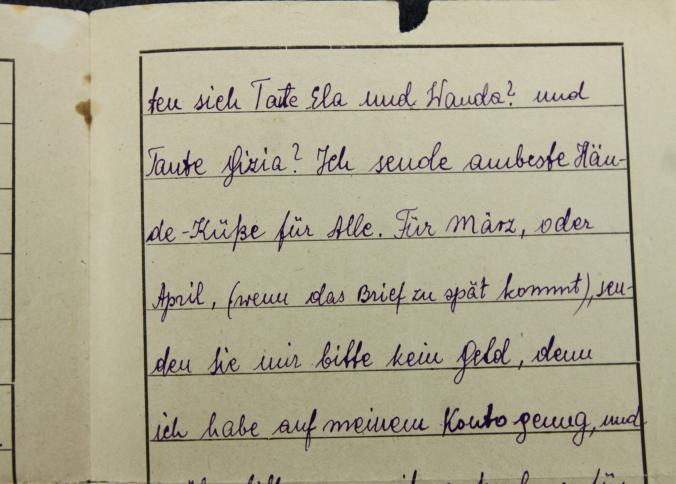 ten sich Tate Ela und Wanda? und
Tante Gizia? Ich sende ambeste Hän-
de-Küße für Alle. Für März, oder
April, (wenn das Brief zu spät kommt), sen-
den Sie mir bitte kein Geld, denn
ich habe auf meinem Konto genug, und